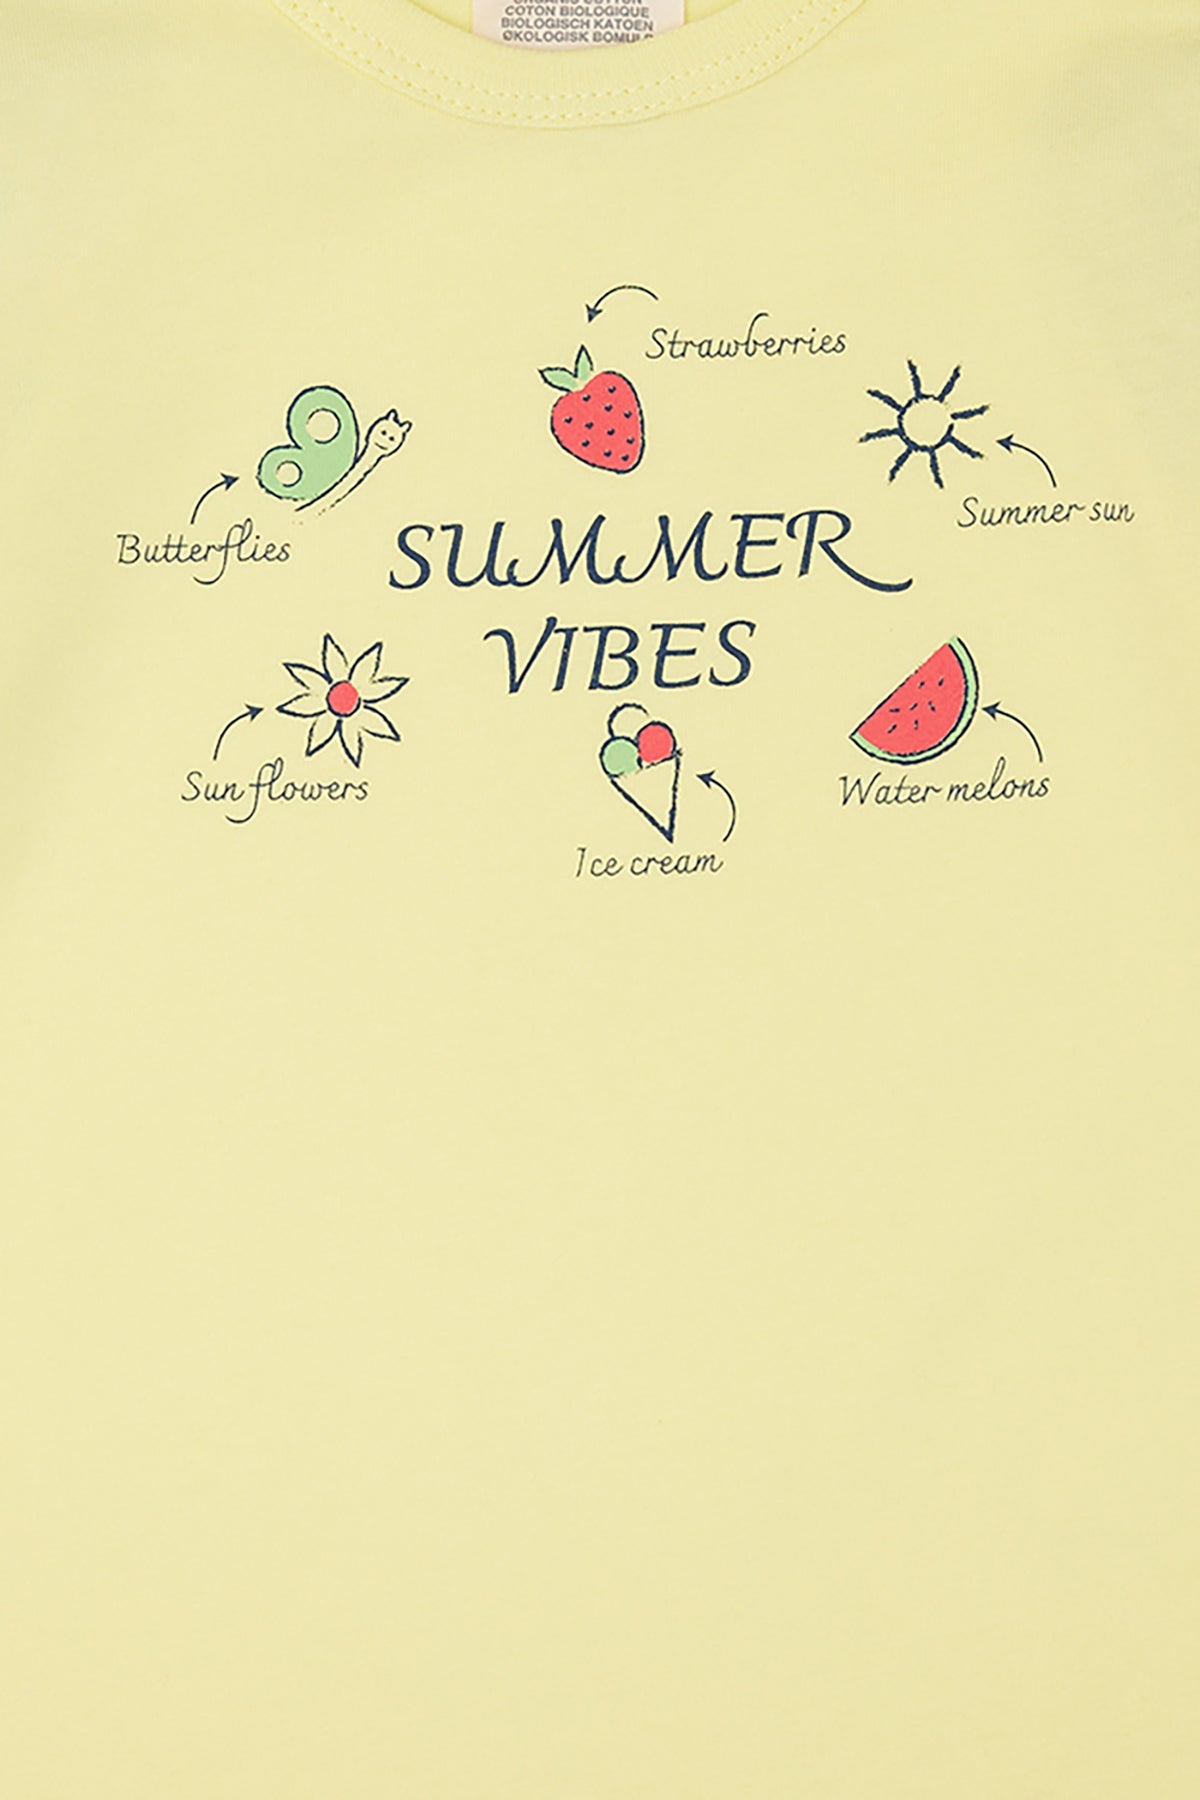 COTON BIOLOGIQUE
BIOLOGISCH KATOEN
ØKOLOGISK BOMULD
Strawberries
Summer sun
Butterflies
SUMMER
VIBES
Sun flowers
Water melons
Ice cream